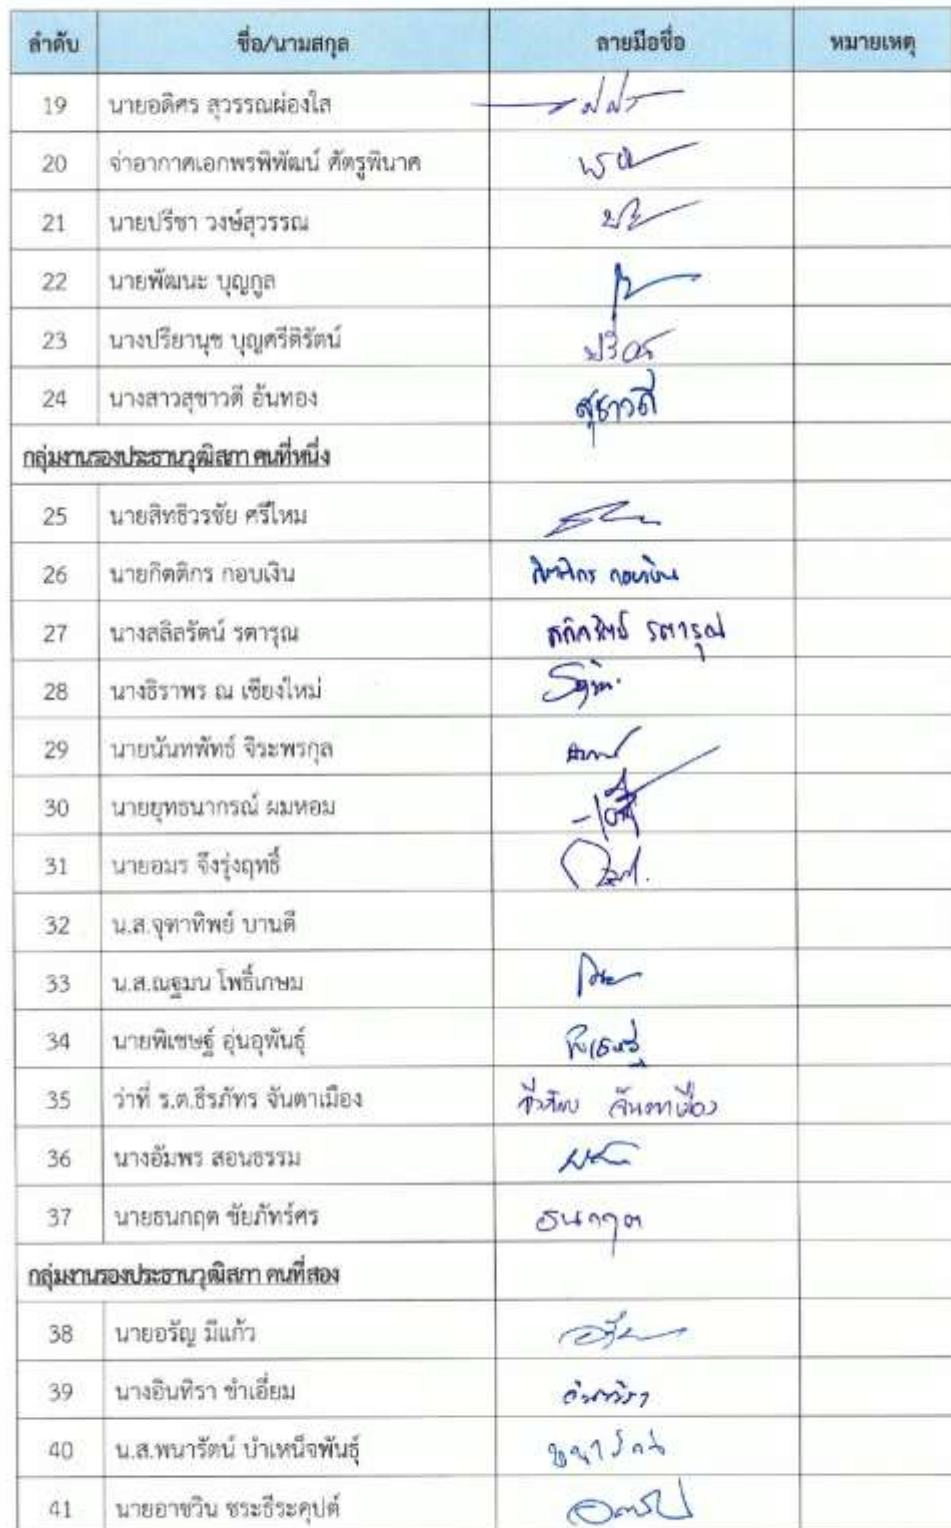 ลำดับ ชื่อ/นามสกุล ลายมือชื่อ หมายเหตุ
19 นายอดิศร สุวรรณผ่องใส
20 จ่าอากาศเอกพรพิพัฒน์ ศัตรูพินาศ
21 นายปรีชา วงษ์สุวรรณ
22 นายพัฒนะ บุญกูล
23 นางปรียานุช บุญศรีดิรัตน์
24 นางสาวสุชาวดี อ้นทอง สุชาวดี
กลุ่มงานรองประธานวุฒิสภา คนที่หนึ่ง
25 นายสิทธิวรชัย ศรีไหม
26 นายกิตติกร กอบเงิน กิตติกร กอบเงิน
27 นางสลิลรัตน์ รตารุณ สลิลรัตน์ รตารุณ
28 นางธิราพร ณ เชียงใหม่
29 นายนันทพัทธ์ จิระพรกุล
30 นายยุทธนากรณ์ ผมหอม
31 นายอมร จึงรุ่งฤทธิ์
32 น.ส.จุฑาทิพย์ บานดี
33 น.ส.ณฐมน โพธิ์เกษม
34 นายพิเชษฐ์ อุ่นอุพันธุ์ พิเชษฐ์
35 ว่าที่ ร.ต.ธีรภัทร จันตาเมือง ธีรภัทร จันตาเมือง
36 นางอัมพร สอนธรรม
37 นายธนกฤต ชัยภัทร์ศร ธนกฤต
กลุ่มงานรองประธานวุฒิสภา คนที่สอง
38 นายอรัญ มีแก้ว
39 นางอินทิรา ขำเอี่ยม อินทิรา
40 น.ส.พนารัตน์ บำเหน็จพันธุ์ พนารัตน์
41 นายอาชวิน ชระธีระคุปต์